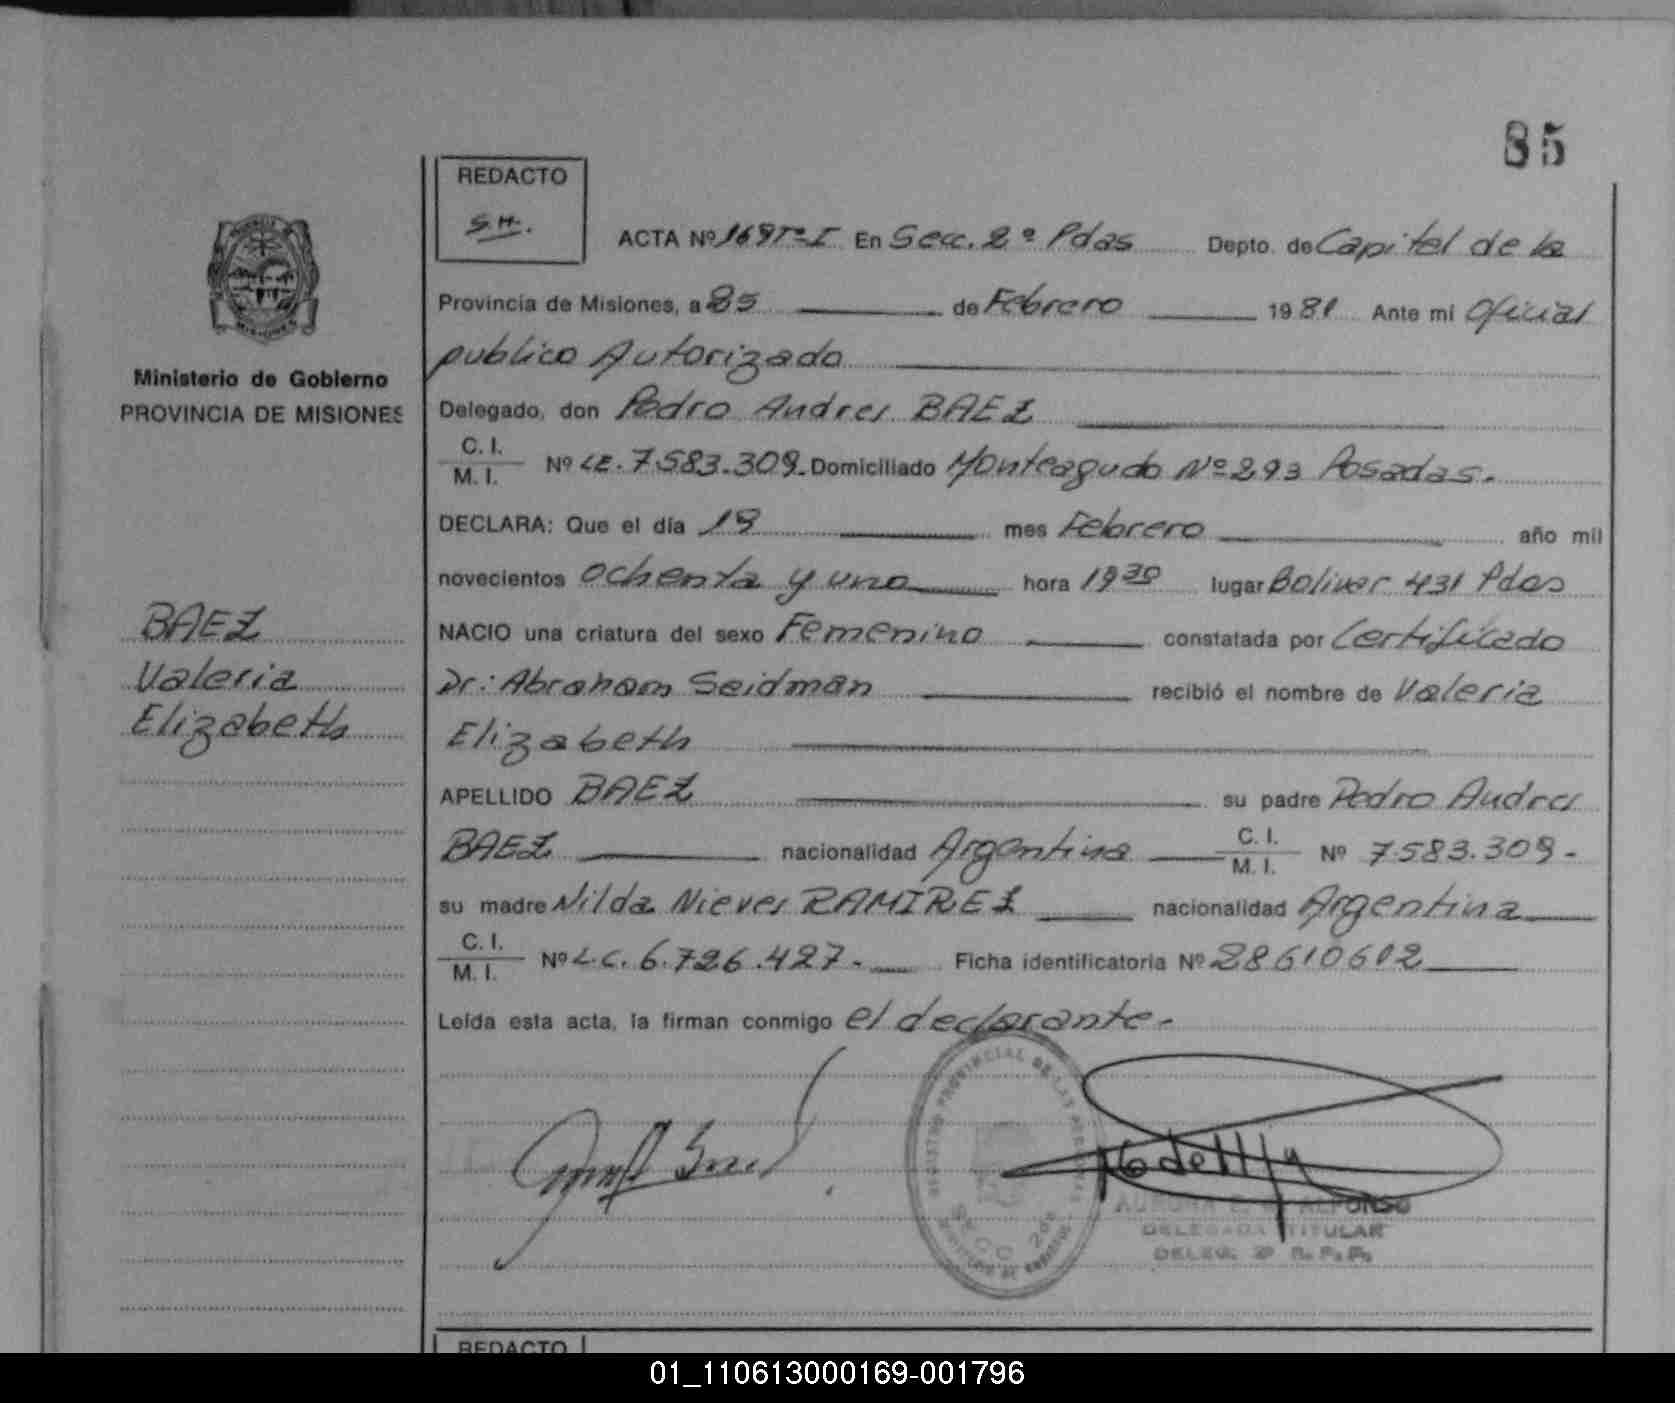 85
REDACTO
S.H.
ACTA Nº 169 Tº I En Secc. 2º Pdas Depto. de Capital de la
Provincia de Misiones, a 25 de Febrero 1981 Ante mi Oficial
publico Autorizado
MISIONES
Ministerio de Gobierno
PROVINCIA DE MISIONES
Delegado, don Pedro Andres BAEZ
C. I.
M. I. Nº LE. 7.583.309. Domiciliado Monteagudo Nº 293 Posadas.
DECLARA: Que el día 19 mes Febrero año mil
novecientos ochenta y uno hora 19 30 lugar Bolivar 431 Pdas
BAEZ
Valeria
Elizabeth
NACIO una criatura del sexo Femenino constatada por Certificado
Dr: Abraham Seidman recibió el nombre de Valeria
Elizabeth
APELLIDO BAEZ su padre Pedro Andres
BAEZ nacionalidad Argentina C. I. M. I. Nº 7.583.309-
su madre Nilda Nieves RAMIREZ nacionalidad Argentina
C. I.
M. I. Nº L.C. 6.726.427.- Ficha identificatoria Nº 28610602
Leída esta acta, la firman conmigo el declarante-
REGISTRO PROVINCIAL DE LAS PERSONAS
SECC. 2da
ALFONSO
DELEGADA TITULAR
DELEG. 2º R. P. P.
REDACTO
01_110613000169-001796